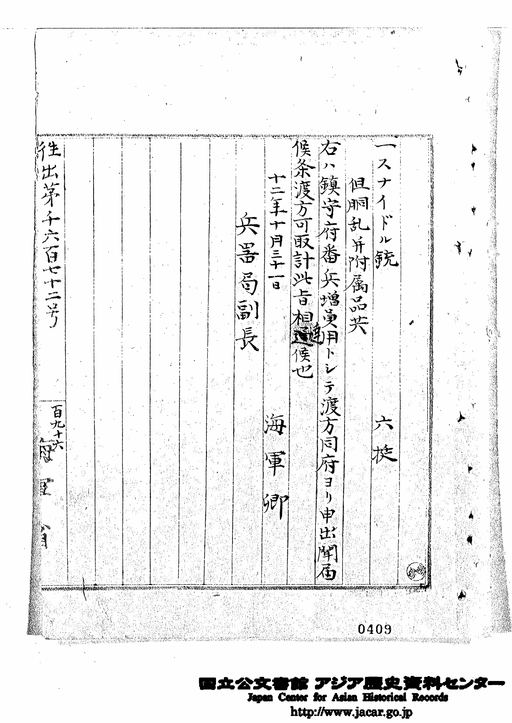 一スナイドル銃 六挺
但胴乱并附属品共
右ハ鎮守府番兵増員用トシテ渡方同府ヨリ申出聞届
候条渡方可取計此旨相達候也
十二年十月三十一日
海軍卿
兵器局副長
往出第千六百七十二号
百九十六
海軍省
0409
国立公文書館 アジア歴史資料センター
Japan Center for Asian Historical Records
http://www.jacar.go.jp